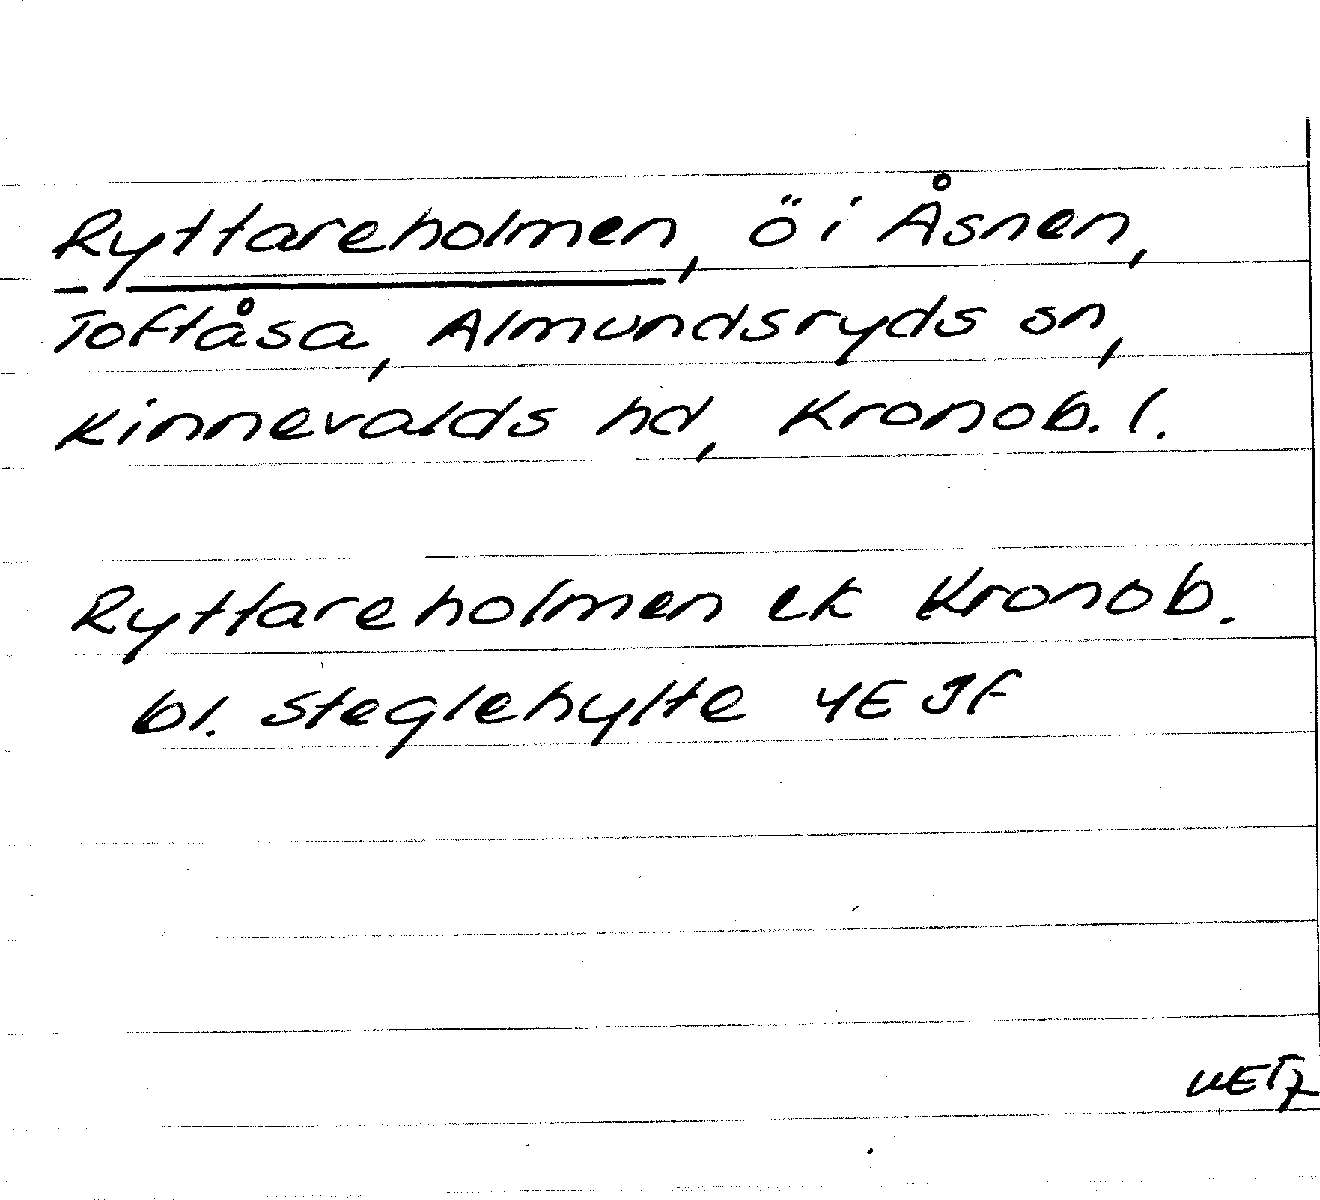 Ryttareholmen, ö i Åsnen,
Toftåsa, Almundsryds sn,
Kinnevalds hd, Kronob. l.
Ryttareholmen ek Kronob.
bl. Steglehylte 4E 9f